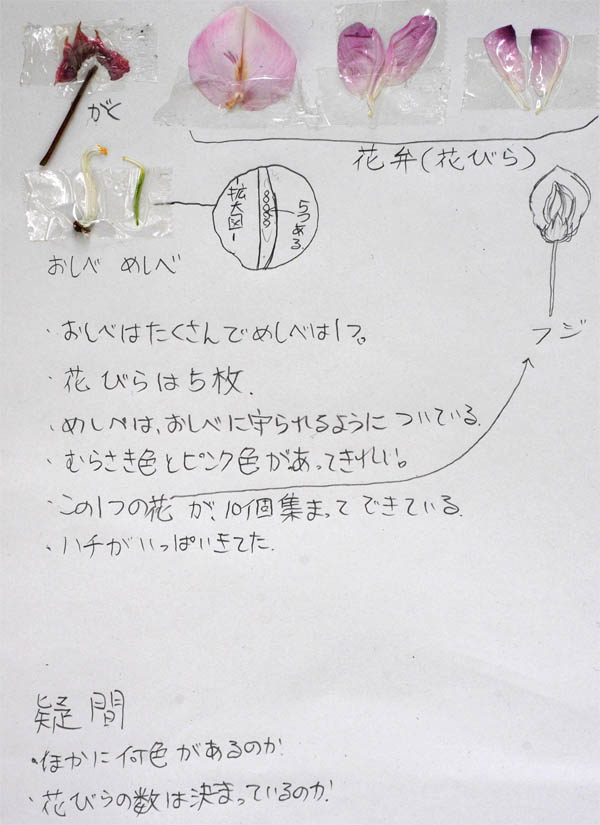 がく
花弁(花びら)
拡大図
5つある
おしべ めしべ
フジ
・おしべはたくさんでめしべは1つ。
・花びらは5枚.
・めしべは、おしべに守られるようについている.
・むらさき色とピンク色があってきれい。
・この1つの花が、10個集まってできている.
・ハチがいっぱいきてた.
疑問
・ほかに何色があるのか.
・花びらの数は決まっているのか.